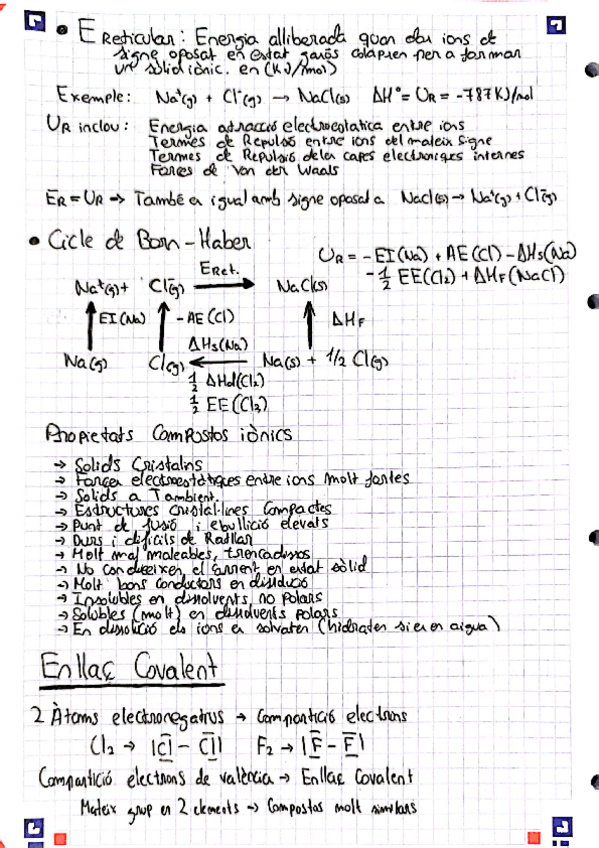 • E Reticular: Energia alliberada quan dos ions de
signe oposat en estat gasós colapsen per a formar
un sòlid iònic. en (KJ/mol)
Exemple: Na⁺(g) + Cl⁻(g) → NaCl(s) ΔH° = UR = -787 KJ/mol
UR inclou: Energia atracció electrostatica entre ions
Termes de Repulsó entre ions del mateix signe
Termes de Repulsió de les capes electròniques internes
Forces de Van der Waals
ER = UR → També és igual amb signe oposat a NaCl(s) → Na⁺(g) + Cl⁻(g)
• Cicle de Born-Haber
UR = - EI(Na) + AE(Cl) - ΔHs(Na)
- 1/2 EE(Cl₂) + ΔHF(NaCl)
ERet.
Na⁺(g) + Cl⁻(g) → NaCl(s)
EI(Na) -AE(Cl) ΔHF
ΔHs(Na)
Na(g) Cl(g) ← Na(s) + 1/2 Cl(g)
1/2 ΔHd(Cl₂)
1/2 EE(Cl₂)
Propietats Compostos iònics
→ Solids Cristalins
→ Forces electroestàtiques entre ions molt fortes
→ Solids a Tambient.
→ Estructures cristal·lines compactes
→ Punt de fusió i ebullició elevats
→ Durs i dificils de Ratllar
→ Molt maleables, trencadissos
→ No condueixen el corrent en estat sòlid
→ Molt bons conductors en dissolució
→ Insolubles en dissolvents no polars
→ Solubles (molt) en dissolvents polars
→ En dissolició els ions es solvaten (hidraten si es en aigua)
Enllaç Covalent
2 Àtoms electronegatius → Compartició electrons
Cl₂ → |C̅l̅ - C̅l̅| F₂ → |F̅ - F̅|
Compartició electrons de valència → Enllaç Covalent
Mateix grup en 2 elements → Compostos molt similars